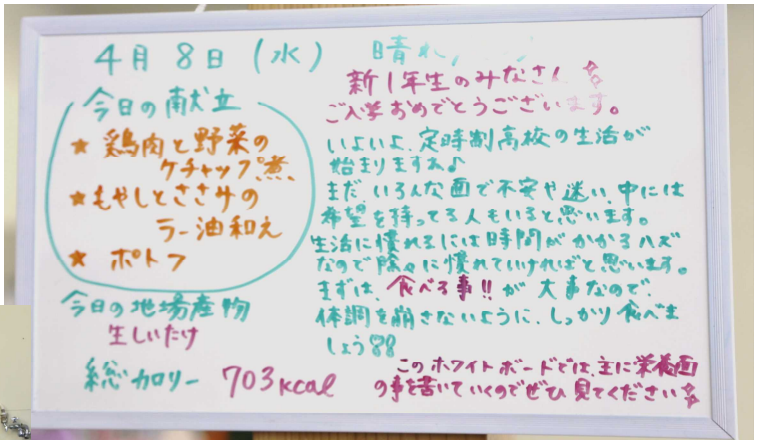 4月8日(水) 晴れ
今日の献立
★ 鶏肉と野菜の
ケチャップ煮
★もやしとささみの
ラー油和え
★ ポトフ
今日の地場産物
生しいたけ
総カロリー 703kcal
新1年生のみなさん
ご入学おめでとうございます。
いよいよ、定時制高校の生活が
始まりますね♪
まだ、いろんな面で不安や迷い、中には
希望を持ってる人もいると思います。
生活に慣れるには時間がかかるハズ
なので除々に慣れていければと思います。
まずは、食べる事!!が大事なので、
体調を崩さないように、しっかり食べま
しょう
このホワイトボードでは、主に栄養面
の事を書いていくのでぜひ見てください